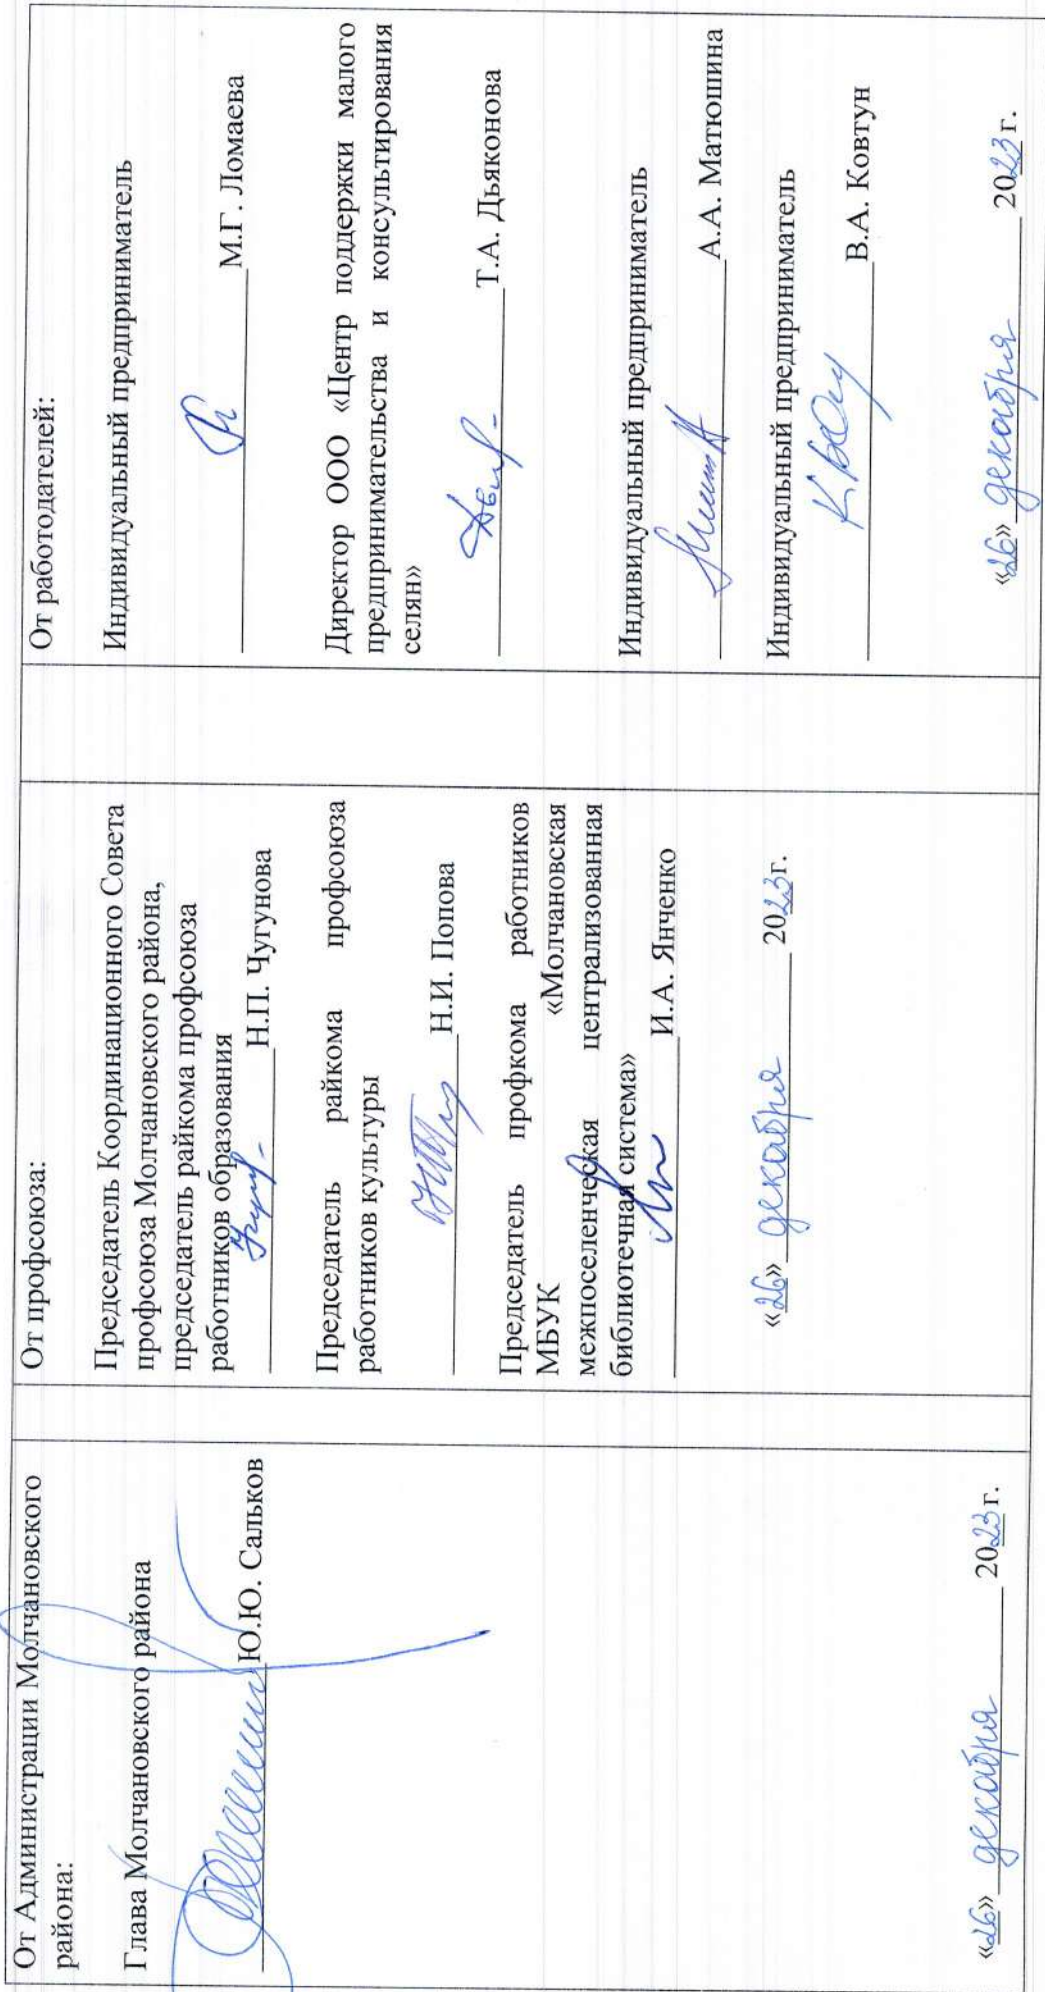 От Администрации Молчановского
района:
Глава Молчановского района
Ю.Ю. Сальков
«26» декабря 2023 г.
От профсоюза:
Председатель Координационного Совета
профсоюза Молчановского района,
председатель райкома профсоюза
работников образования
Н.П. Чугунова
Председатель райкома профсоюза
работников культуры
Н.И. Попова
Председатель профкома работников
МБУК «Молчановская
межпоселенческая централизованная
библиотечная система»
И.А. Янченко
«26» декабря 2023г.
От работодателей:
Индивидуальный предприниматель
М.Г. Ломаева
Директор ООО «Центр поддержки малого
предпринимательства и консультирования
селян»
Т.А. Дьяконова
Индивидуальный предприниматель
А.А. Матюшина
Индивидуальный предприниматель
В.А. Ковтун
«26» декабря 2023 г.